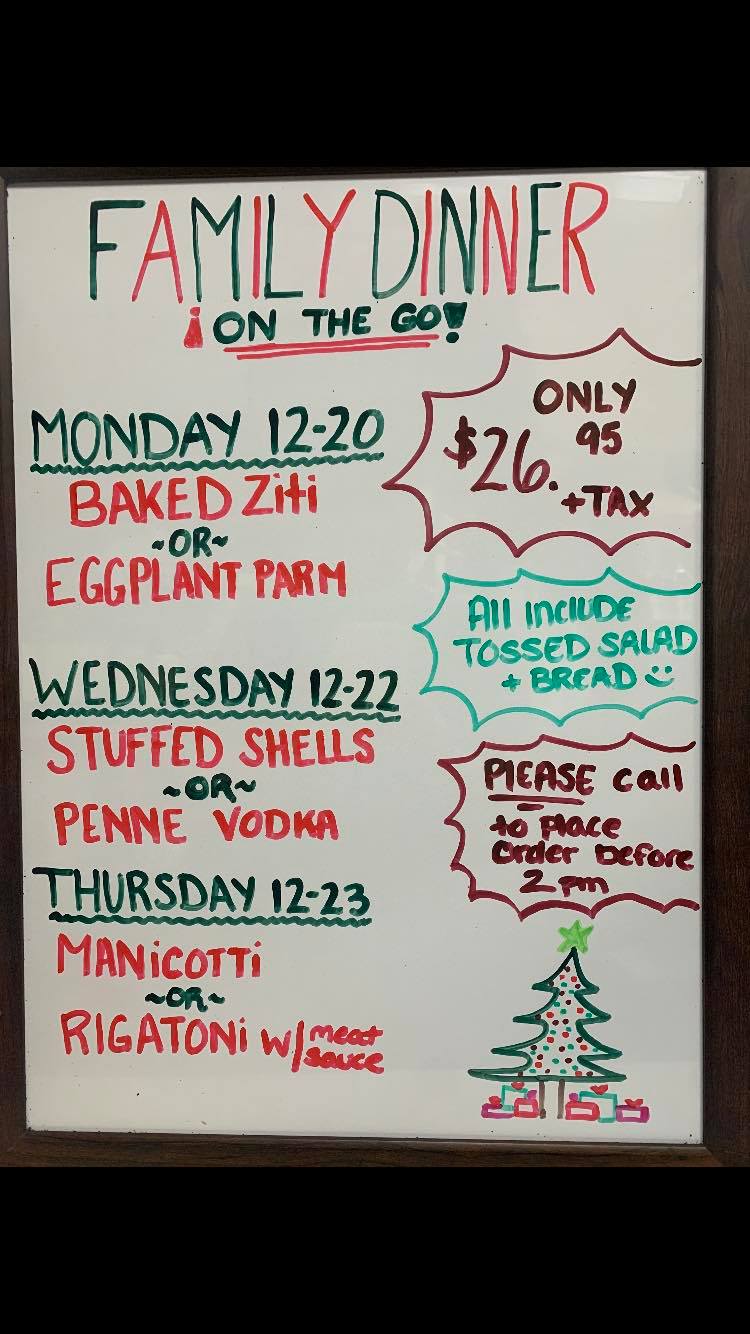 FAMILY DINNER
¡ON THE GO!
MONDAY 12-20
BAKED Ziti
~OR~
EGGPLANT PARM
WEDNESDAY 12-22
STUFFED SHELLS
~OR~
PENNE VODKA
THURSDAY 12-23
MANiCOTTi
~OR~
RIGATONi W/ meat
sauce
ONLY
$26.95
+TAX
All INClUDE
TOSSED SALAD
+ BREAD :)
PlEASE call
to Place
Order before
2 pm